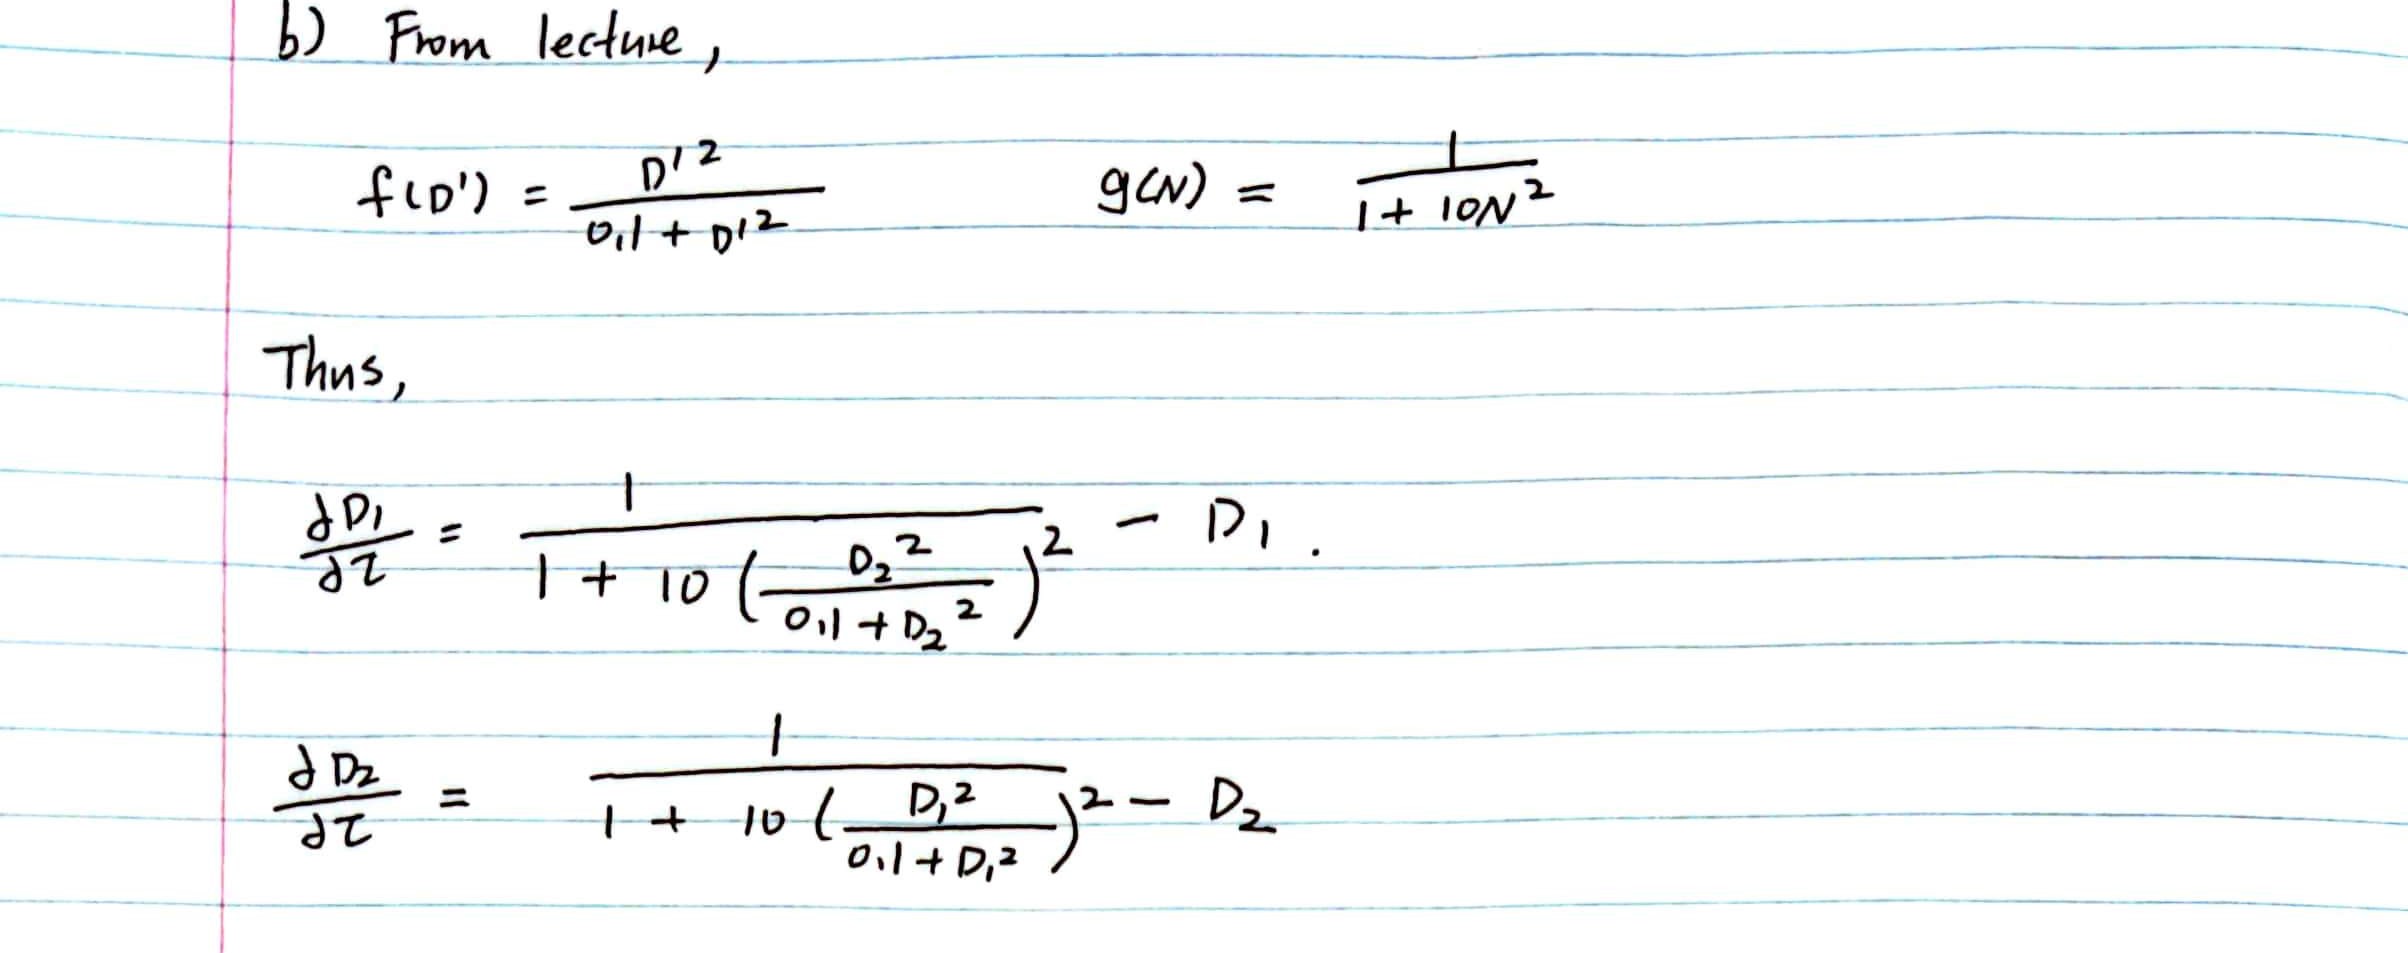 b) From lecture,
f(D') = D'² / (0.1 + D'²)    g(N) = 1 / (1 + 10N²)
Thus,
dD₁/dτ = 1 / (1 + 10 (D₂² / (0.1 + D₂²))²) − D₁.
dD₂/dτ = 1 / (1 + 10 (D₁² / (0.1 + D₁²))²) − D₂